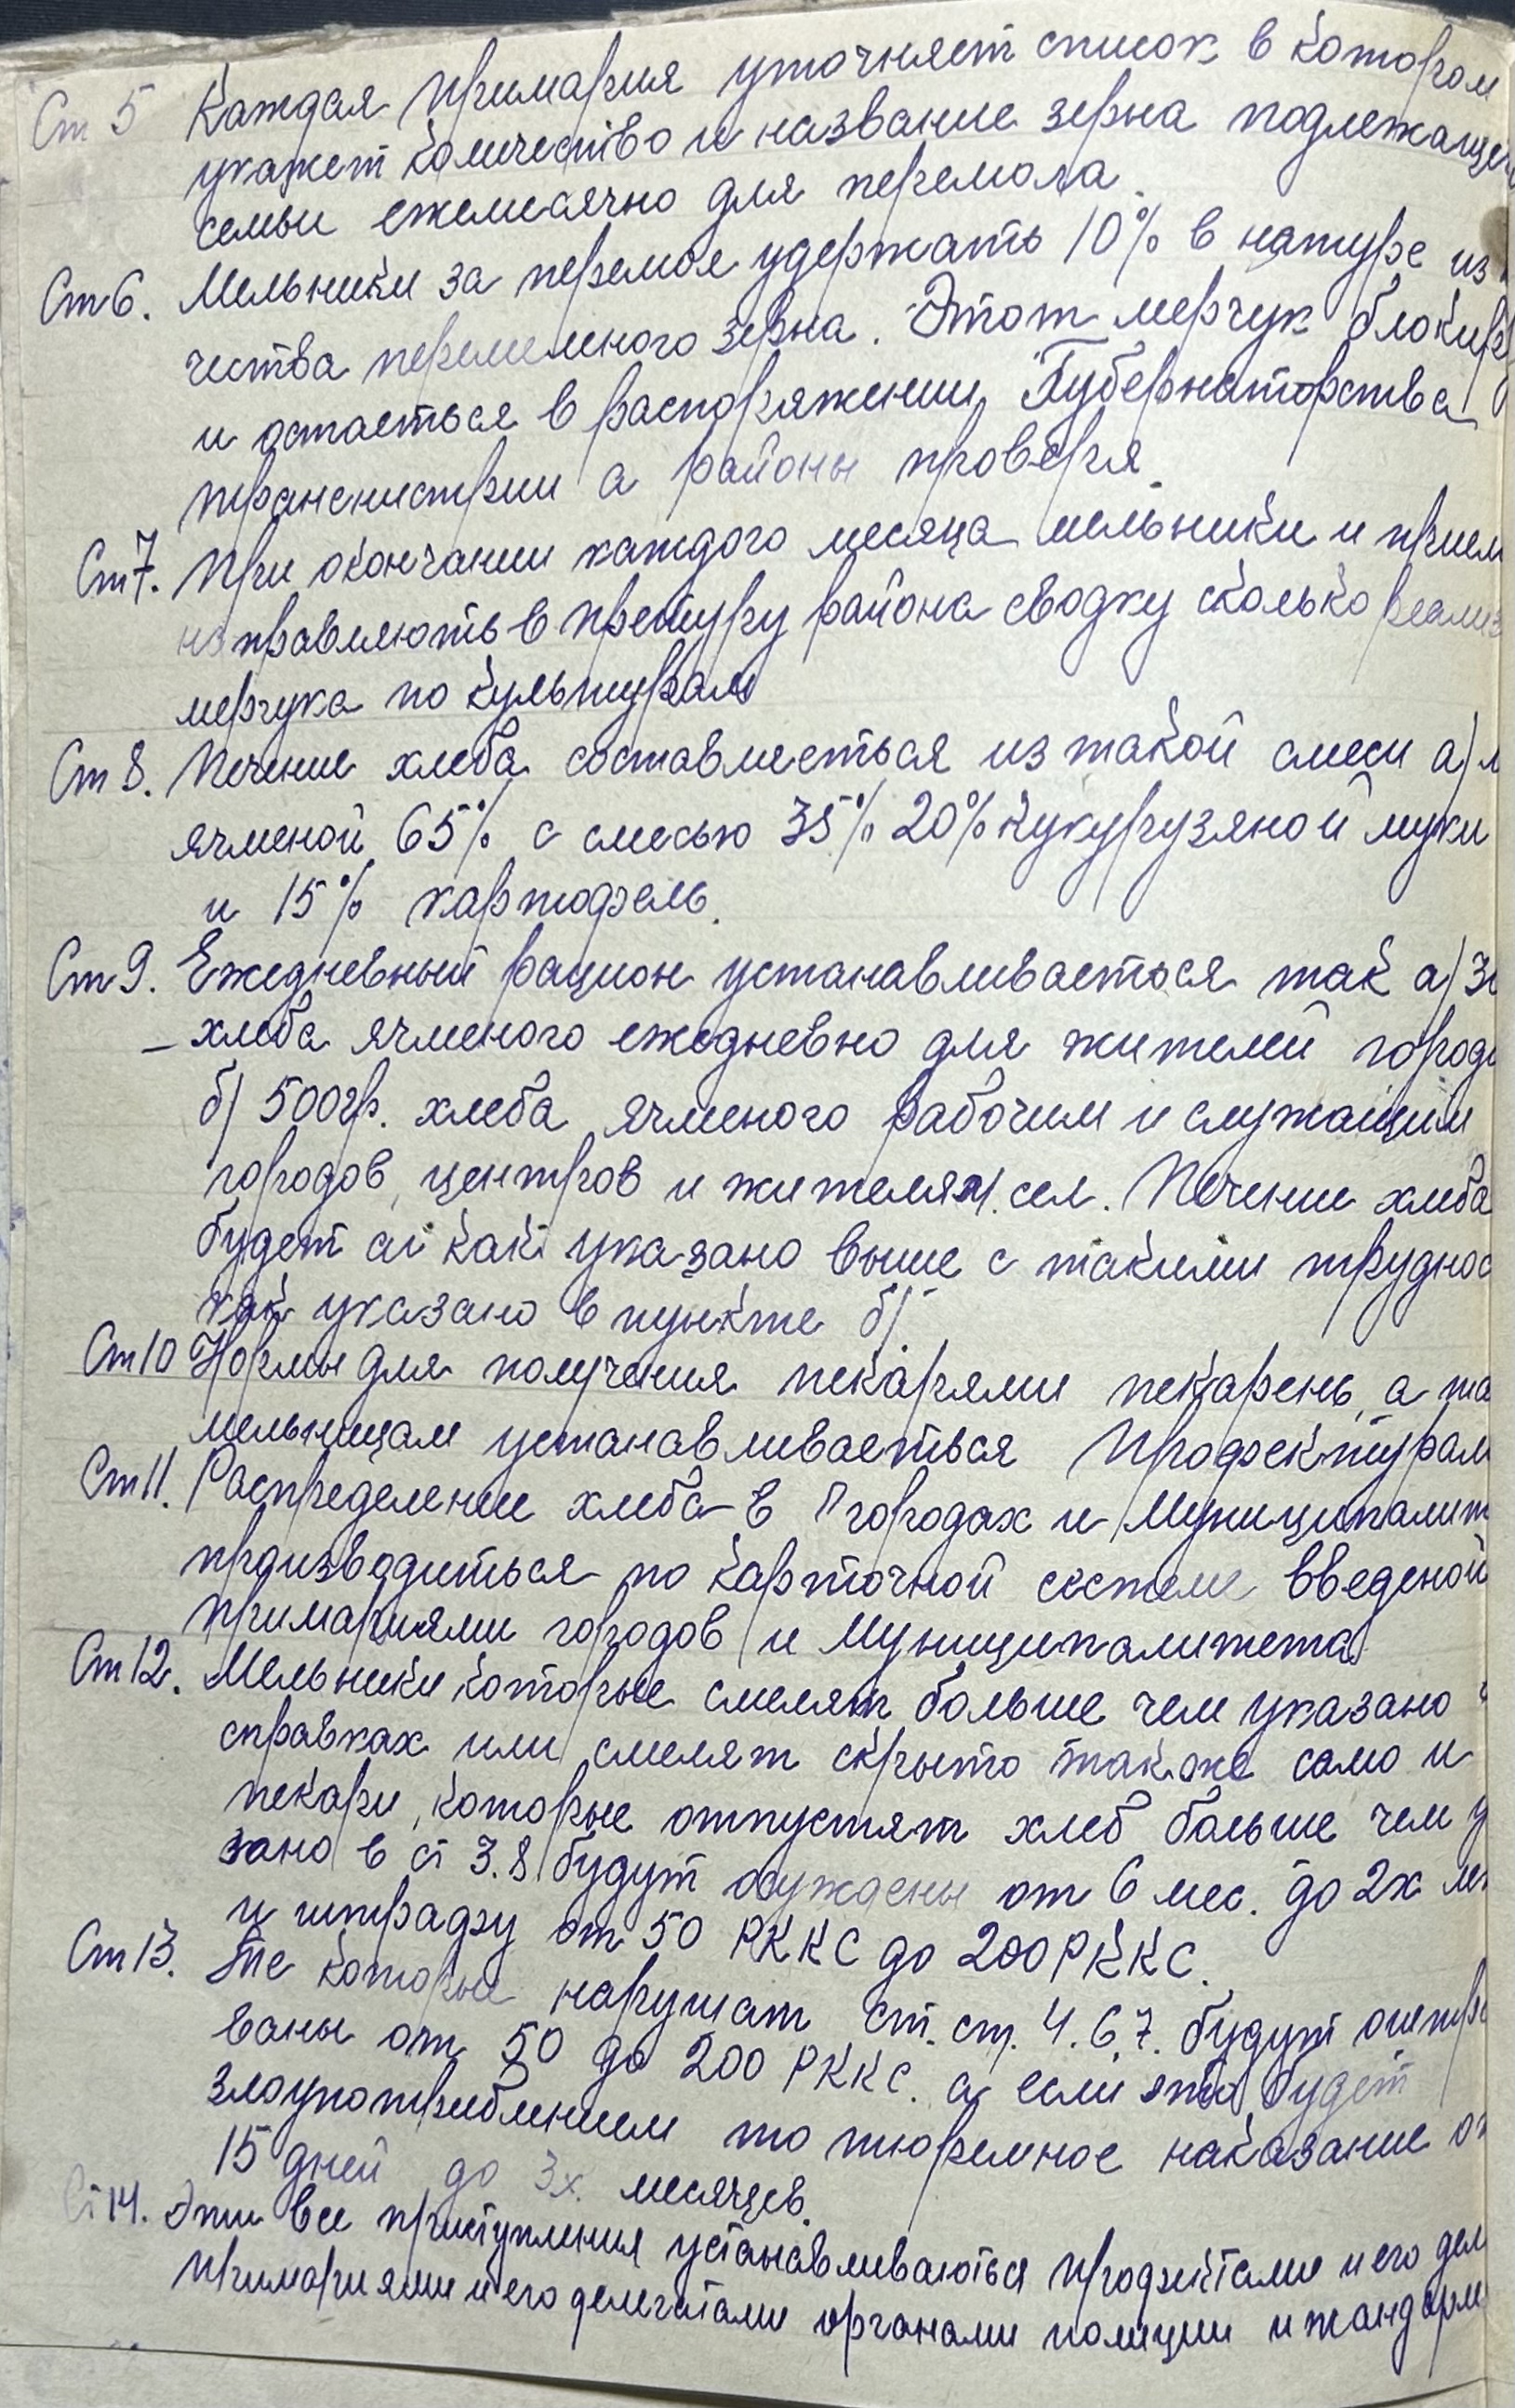 Ст 5 Каждая Примария уточняет список в котором
укажет количество и название зерна подлежащего
семьи ежемесячно для перемола.
Ст 6. Мельники за перемол удержать 10% в натуре из
чества перемеленого зерна. Этот мерчук блокир
и остаеться в распоряжении Губернаторства
транснистрии а районы проверя.
Ст 7. При окончании каждого месяца мельники и прием
направляють в претуру района сводку сколько реализ
мерчука по культурам
Ст 8. Печение хлеба составляеться из такой смеси а) м
ячменой 65% с смесью 35% 20% кукурузяной муки
и 15% картофель.
Ст 9. Ежедневный рацион устанавливаеться так а) 3
– хлеба ячменого ежедневно для жителей город
б) 500гр. хлеба ячменого рабочим и служащим
городов, центров и жителям сел. Печение хлеба
будет как указано выше с такими труднос
как указано в пункте б)
Ст 10 Нормы для получения пекарями пекарень, а та
мельницам устанавливаеться Профектурам
Ст 11. Распределение хлеба в городах и Муниципалит
производиться по карточной системе введеной
примариями городов и Муниципалитета
Ст 12. Мельники которые смелят больше чем указано
справках или смелят скрыто так же само и
пекари, которые отпустят хлеб больше чем у
зано в ст 3.8 будут осуждены от 6 мес. до 2х ле
и штрафу от 50 РККС до 200 РККС.
Ст 13. Те которые нарушат ст. ст. 4. 6, 7. будут оштра
ваны от 50 до 200 РККС. а если это будет
злоупотреблением то тюремное наказание от
15 дней до 3х месяцев.
Ст 14. Эти все приступления устанавливаються профектами и его дел
Примариями и его делегатами органами полиции и жандарм